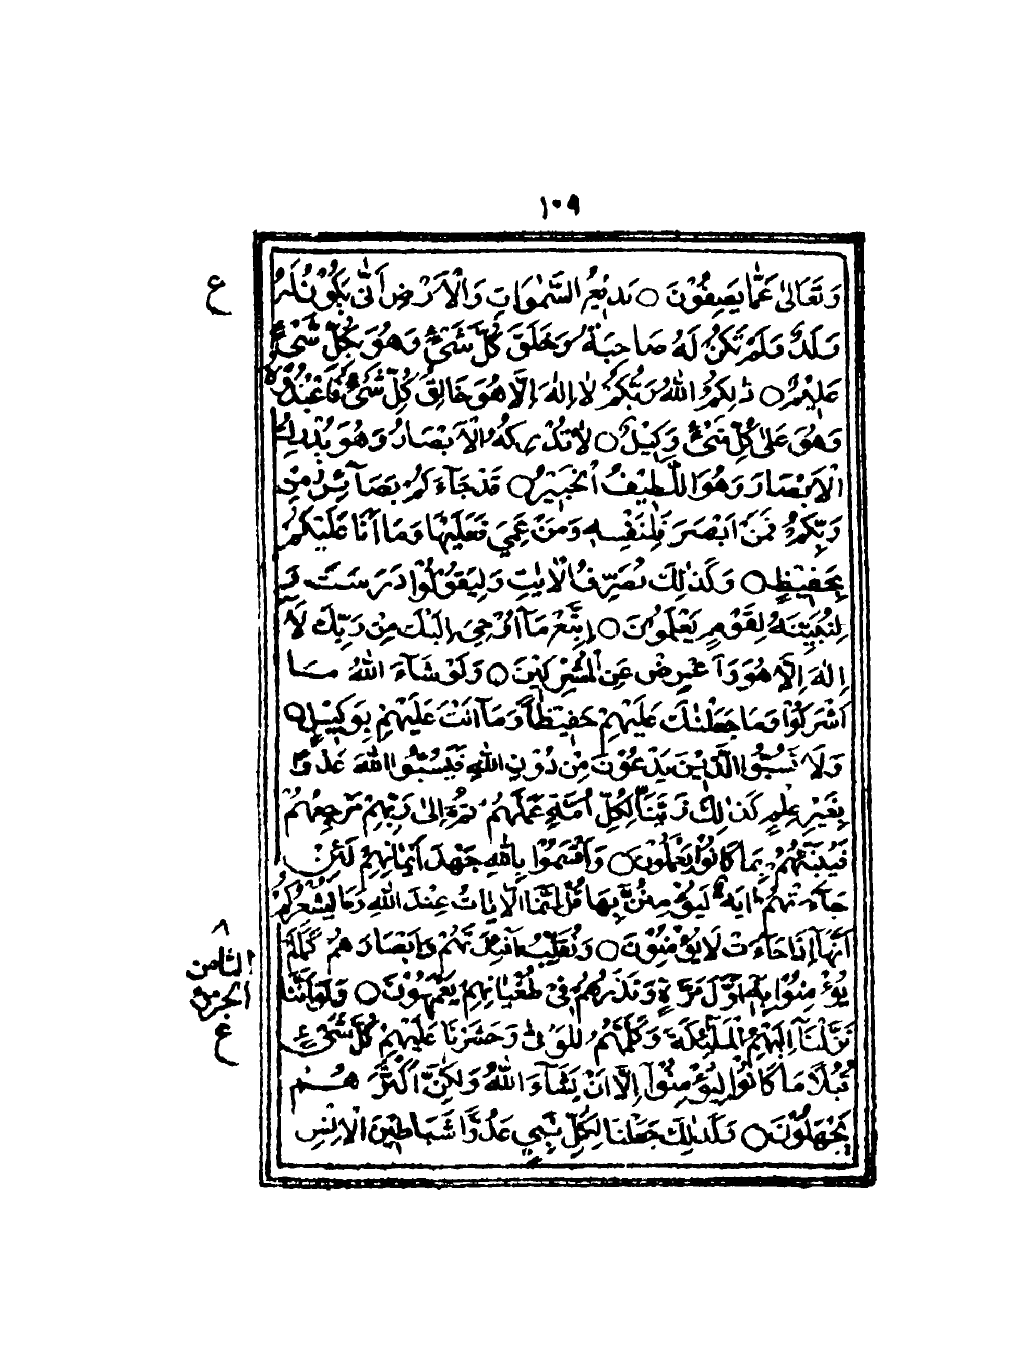 ١٠٩
ع
وَتَعَالٰى عَمَّا يَصِفُوْنَ ○ بَدِيْعُ السَّمٰوَاتِ وَالْاَرْضِ اَنّٰى يَكُوْنُ لَهُ
وَلَدٌ وَلَمْ تَكُنْ لَهُ صَاحِبَةٌ وَخَلَقَ كُلَّ شَيْءٍ وَهُوَ بِكُلِّ شَيْءٍ
عَلِيْمٌ ○ ذٰلِكُمُ اللّٰهُ رَبُّكُمْ لَا اِلٰهَ اِلَّا هُوَ خَالِقُ كُلِّ شَيْءٍ فَاعْبُدُوْهُ
وَهُوَ عَلٰى كُلِّ شَيْءٍ وَكِيْلٌ ○ لَا تُدْرِكُهُ الْاَبْصَارُ وَهُوَ يُدْرِكُ
الْاَبْصَارَ وَهُوَ اللَّطِيْفُ الْخَبِيْرُ ○ قَدْ جَآءَكُمْ بَصَآئِرُ مِنْ
رَبِّكُمْ فَمَنْ اَبْصَرَ فَلِنَفْسِهٖ وَمَنْ عَمِيَ فَعَلَيْهَا وَمَا اَنَا عَلَيْكُمْ
بِحَفِيْظٍ ○ وَكَذٰلِكَ نُصَرِّفُ الْاٰيٰتِ وَلِيَقُوْلُوْا دَرَسْتَ وَ
لِنُبَيِّنَهُ لِقَوْمٍ يَعْلَمُوْنَ ○ اِتَّبِعْ مَآ اُوْحِيَ اِلَيْكَ مِنْ رَبِّكَ لَا
اِلٰهَ اِلَّا هُوَ وَاَعْرِضْ عَنِ الْمُشْرِكِيْنَ ○ وَلَوْ شَآءَ اللّٰهُ مَا
اَشْرَكُوْا وَمَا جَعَلْنٰكَ عَلَيْهِمْ حَفِيْظًا وَمَآ اَنْتَ عَلَيْهِمْ بِوَكِيْلٍ ○
وَلَا تَسُبُّوا الَّذِيْنَ يَدْعُوْنَ مِنْ دُوْنِ اللّٰهِ فَيَسُبُّوا اللّٰهَ عَدْوًا
بِغَيْرِ عِلْمٍ كَذٰلِكَ زَيَّنَّا لِكُلِّ اُمَّةٍ عَمَلَهُمْ ثُمَّ اِلٰى رَبِّهِمْ مَرْجِعُهُمْ
فَيُنَبِّئُهُمْ بِمَا كَانُوْا يَعْمَلُوْنَ ○ وَاَقْسَمُوْا بِاللّٰهِ جَهْدَ اَيْمَانِهِمْ لَئِنْ
جَآءَتْهُمْ اٰيَةٌ لَيُؤْمِنُنَّ بِهَا قُلْ اِنَّمَا الْاٰيَاتُ عِنْدَ اللّٰهِ وَمَا يُشْعِرُكُمْ
اَنَّهَآ اِذَا جَآءَتْ لَا يُؤْمِنُوْنَ ○ وَنُقَلِّبُ اَفْئِدَتَهُمْ وَاَبْصَارَهُمْ كَمَا لَمْ
يُؤْمِنُوْا بِهٖ اَوَّلَ مَرَّةٍ وَنَذَرُهُمْ فِيْ طُغْيَانِهِمْ يَعْمَهُوْنَ ○ وَلَوْ اَنَّنَا
٨
الثامن
الجزء
ع
نَزَّلْنَا اِلَيْهِمُ الْمَلٰٓئِكَةَ وَكَلَّمَهُمُ الْمَوْتٰى وَحَشَرْنَا عَلَيْهِمْ كُلَّ شَيْءٍ
قُبُلًا مَا كَانُوْا لِيُؤْمِنُوْآ اِلَّآ اَنْ يَشَآءَ اللّٰهُ وَلٰكِنَّ اَكْثَرَهُمْ
يَجْهَلُوْنَ ○ وَكَذٰلِكَ جَعَلْنَا لِكُلِّ نَبِيٍّ عَدُوًّا شَيَاطِيْنَ الْاِنْسِ